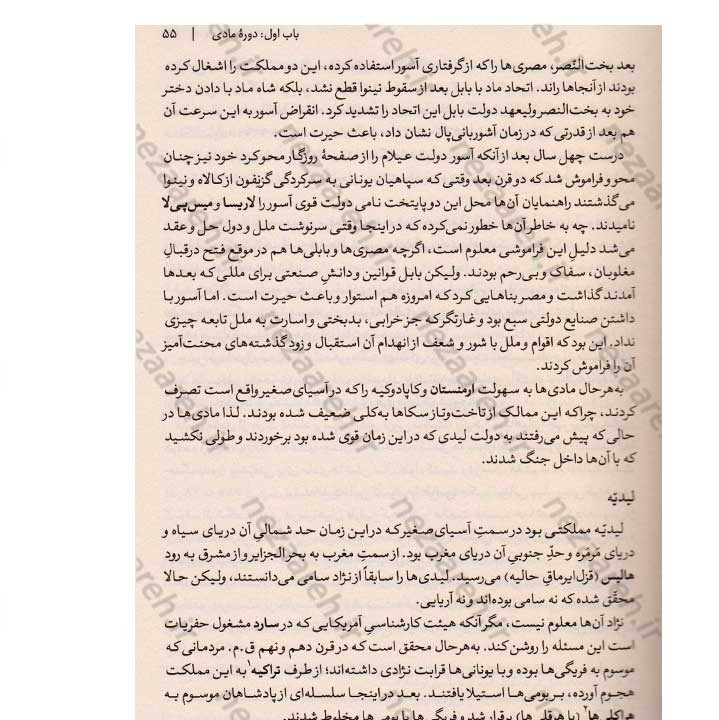 باب اول: دورهٔ مادی | ۵۵
بعد بخت‌النّصر، مصری‌ها را که از گرفتاری آسور استفاده کرده، این دو مملکت را اشغال کرده
بودند از آنجاها راند. اتحاد ماد با بابل بعد از سقوط نینوا قطع نشد، بلکه شاه ماد با دادن دختر
خود به بخت‌النصر ولیعهد دولت بابل این اتحاد را تشدید کرد. انقراض آسور به این سرعت آن
هم بعد از قدرتی که در زمان آشوربانی‌پال نشان داد، باعث حیرت است.
درست چهل سال بعد از آنکه آسور دولت عیلام را از صفحهٔ روزگار محو کرد خود نیز چنان
محو و فراموش شد که دو قرن بعد وقتی که سپاهیان یونانی به سرکردگی گزنفون از کالاه و نینوا
می‌گذشتند راهنمایان آن‌ها محل این دو پایتخت نامی دولت قوی آسور را لاریسا و میس‌پی‌لا
نامیدند. چه به خاطر آن‌ها خطور نمی‌کرده که در اینجا وقتی سرنوشت ملل و دول حل و عقد
می‌شد دلیلِ این فراموشی معلوم است، اگرچه مصری‌ها و بابلی‌ها هم در موقع فتح در قبالِ
مغلوبان، سفاک و بی‌رحم بودند. ولیکن بابل قوانین و دانشِ صنعتی برای مللی که بعدها
آمدند گذاشت و مصر بناهایی کرد که امروزه هم استوار و باعث حیرت است. اما آسور با
داشتن صنایع دولتی سبع بود و غارتگر که جز خرابی، بدبختی و اسارت به ملل تابعه چیزی
نداد. این بود که اقوام و ملل با شور و شعف از انهدام آن استقبال و زود گذشته‌های محنت‌آمیز
آن را فراموش کردند.
به‌هرحال مادی‌ها به سهولت ارمنستان و کاپادوکیه را که در آسیای صغیر واقع است تصرف
کردند، چراکه این ممالک از تاخت‌وتاز سکاها به‌کلی ضعیف شده بودند. لذا مادی‌ها در
حالی که پیش می‌رفتند به دولت لیدی که در این زمان قوی شده بود برخوردند و طولی نکشید
که با آن‌ها داخل جنگ شدند.
لیدیّه
لیدیّه مملکتی بود در سمتِ آسیای صغیر که در این زمان حد شمالیِ آن دریای سیاه و
دریای مَرمَره و حدِّ جنوبیِ آن دریای مغرب بود. از سمتِ مغرب به بحرالجزایر و از مشرق به رود
هالیس (قزل‌ایرماقِ حالیه) می‌رسید. لیدی‌ها را سابقاً از نژاد سامی می‌دانستند، ولیکن حالا
محقّق شده که نه سامی بوده‌اند و نه آریایی.
نژاد آن‌ها معلوم نیست، مگر آنکه هیئت کارشناسیِ آمریکایی که در سارد مشغول حفریات
است این مسئله را روشن کند. به‌هرحال محقق است که در قرن دهم و نهم ق.م. مردمانی که
موسوم به فریگی‌ها بوده و با یونانی‌ها قرابت نژادی داشته‌اند؛ از طرف تراکیه۱ به این مملکت
هجوم آورده، بر بومی‌ها استیلا یافتند. بعد در اینجا سلسله‌ای از پادشاهان موسوم به
هراکلی‌ها۲ (یا هرقلی‌ها) برقرار شد و فریگی‌ها با بومی‌ها مخلوط شدند.